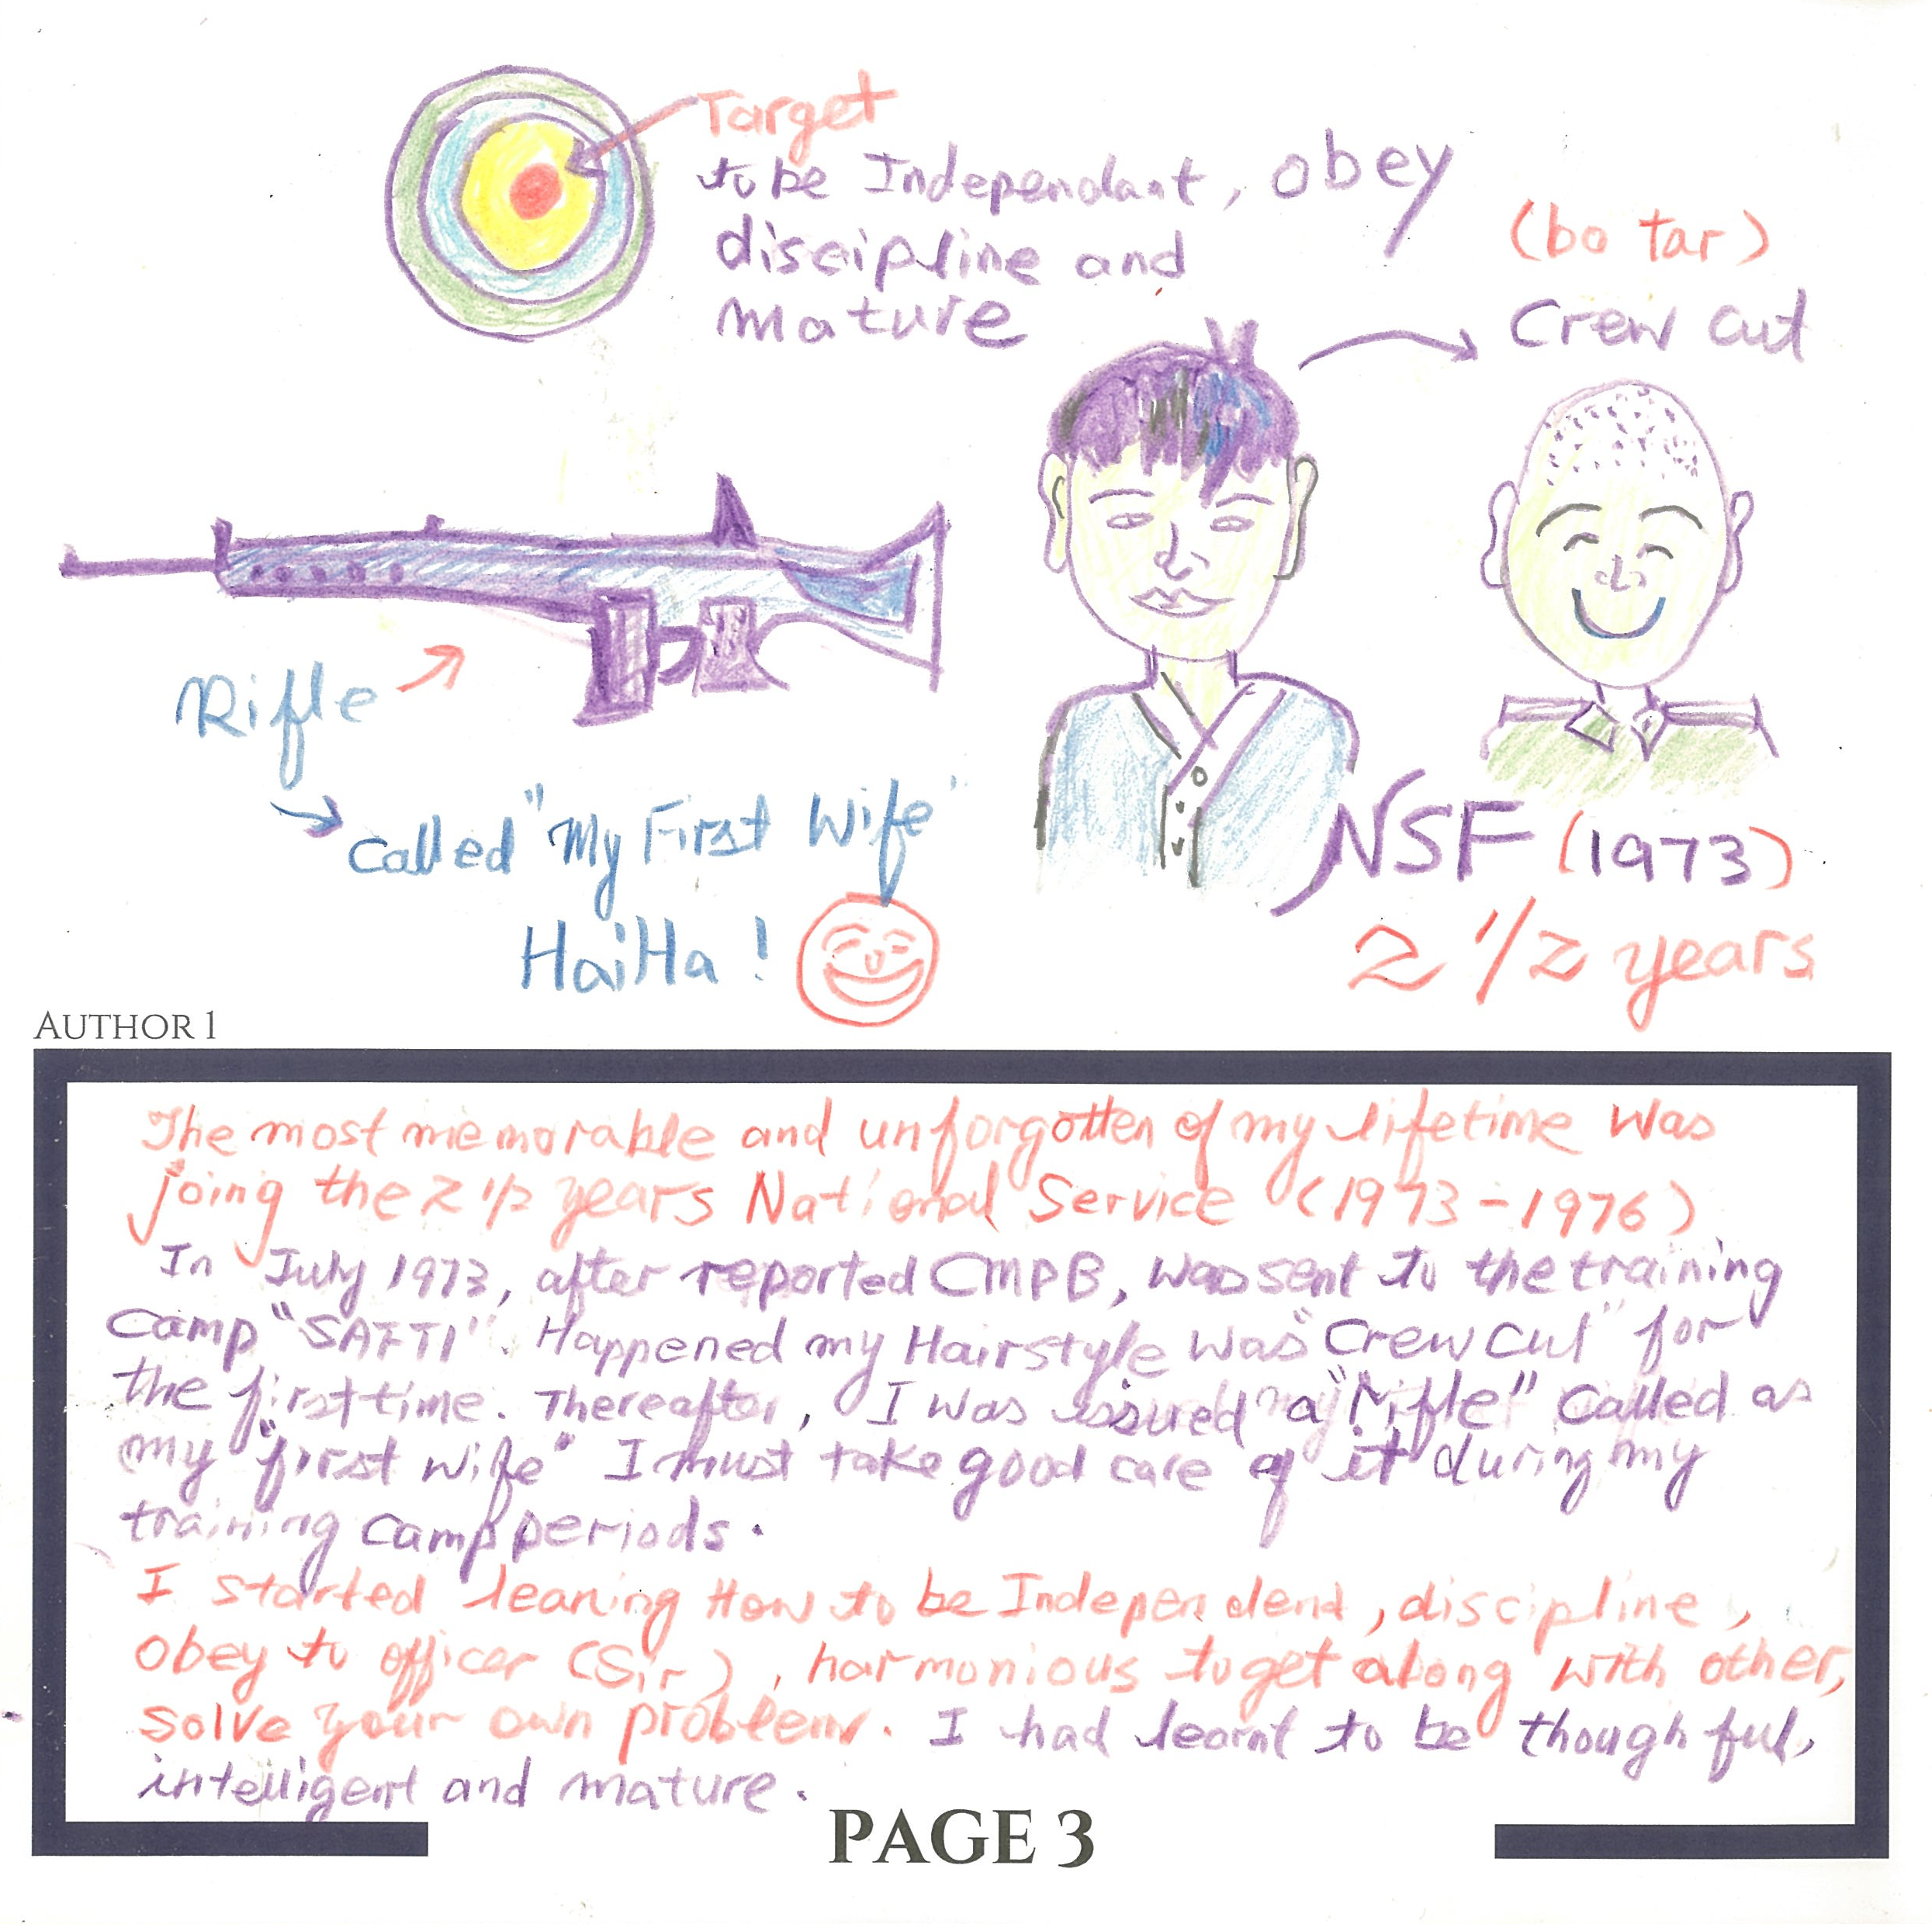 Target
to be Independant, obey
discipline and
mature
(bo tar)
Crew cut
Rifle
called "My First Wife"
HaiHa!
NSF (1973)
2 1/2 years
AUTHOR 1
The most memorable and unforgotten of my lifetime was
joing the 2 1/2 years National Service (1973-1976)
In July 1973, after reported CMPB, was sent to the training
Camp "SAFTI". Happened my Hairstyle was "Crew Cut" for
the first time. Thereafter, I was issued a "Rifle" called as
my "first wife" I must take good care of it during my
training camp periods.
I started leaning How to be Independend, discipline,
obey to officer (Sir), harmonious to get along with other,
solve your own problem. I had learnt to be though ful,
intelligent and mature.
PAGE 3